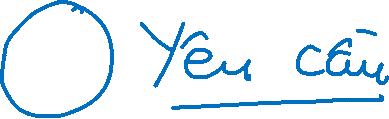 Yêu cầu